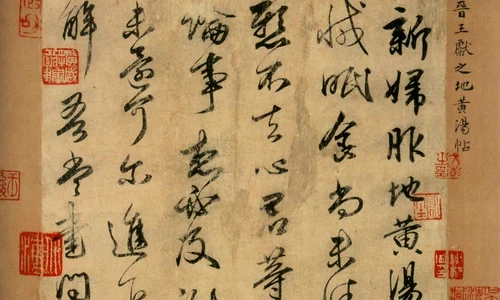 晉王獻之地黃湯帖
新婦服地黃湯
減眠食尚未
懸不去心君等
論事想必及
未還何爾進
解吾當書問